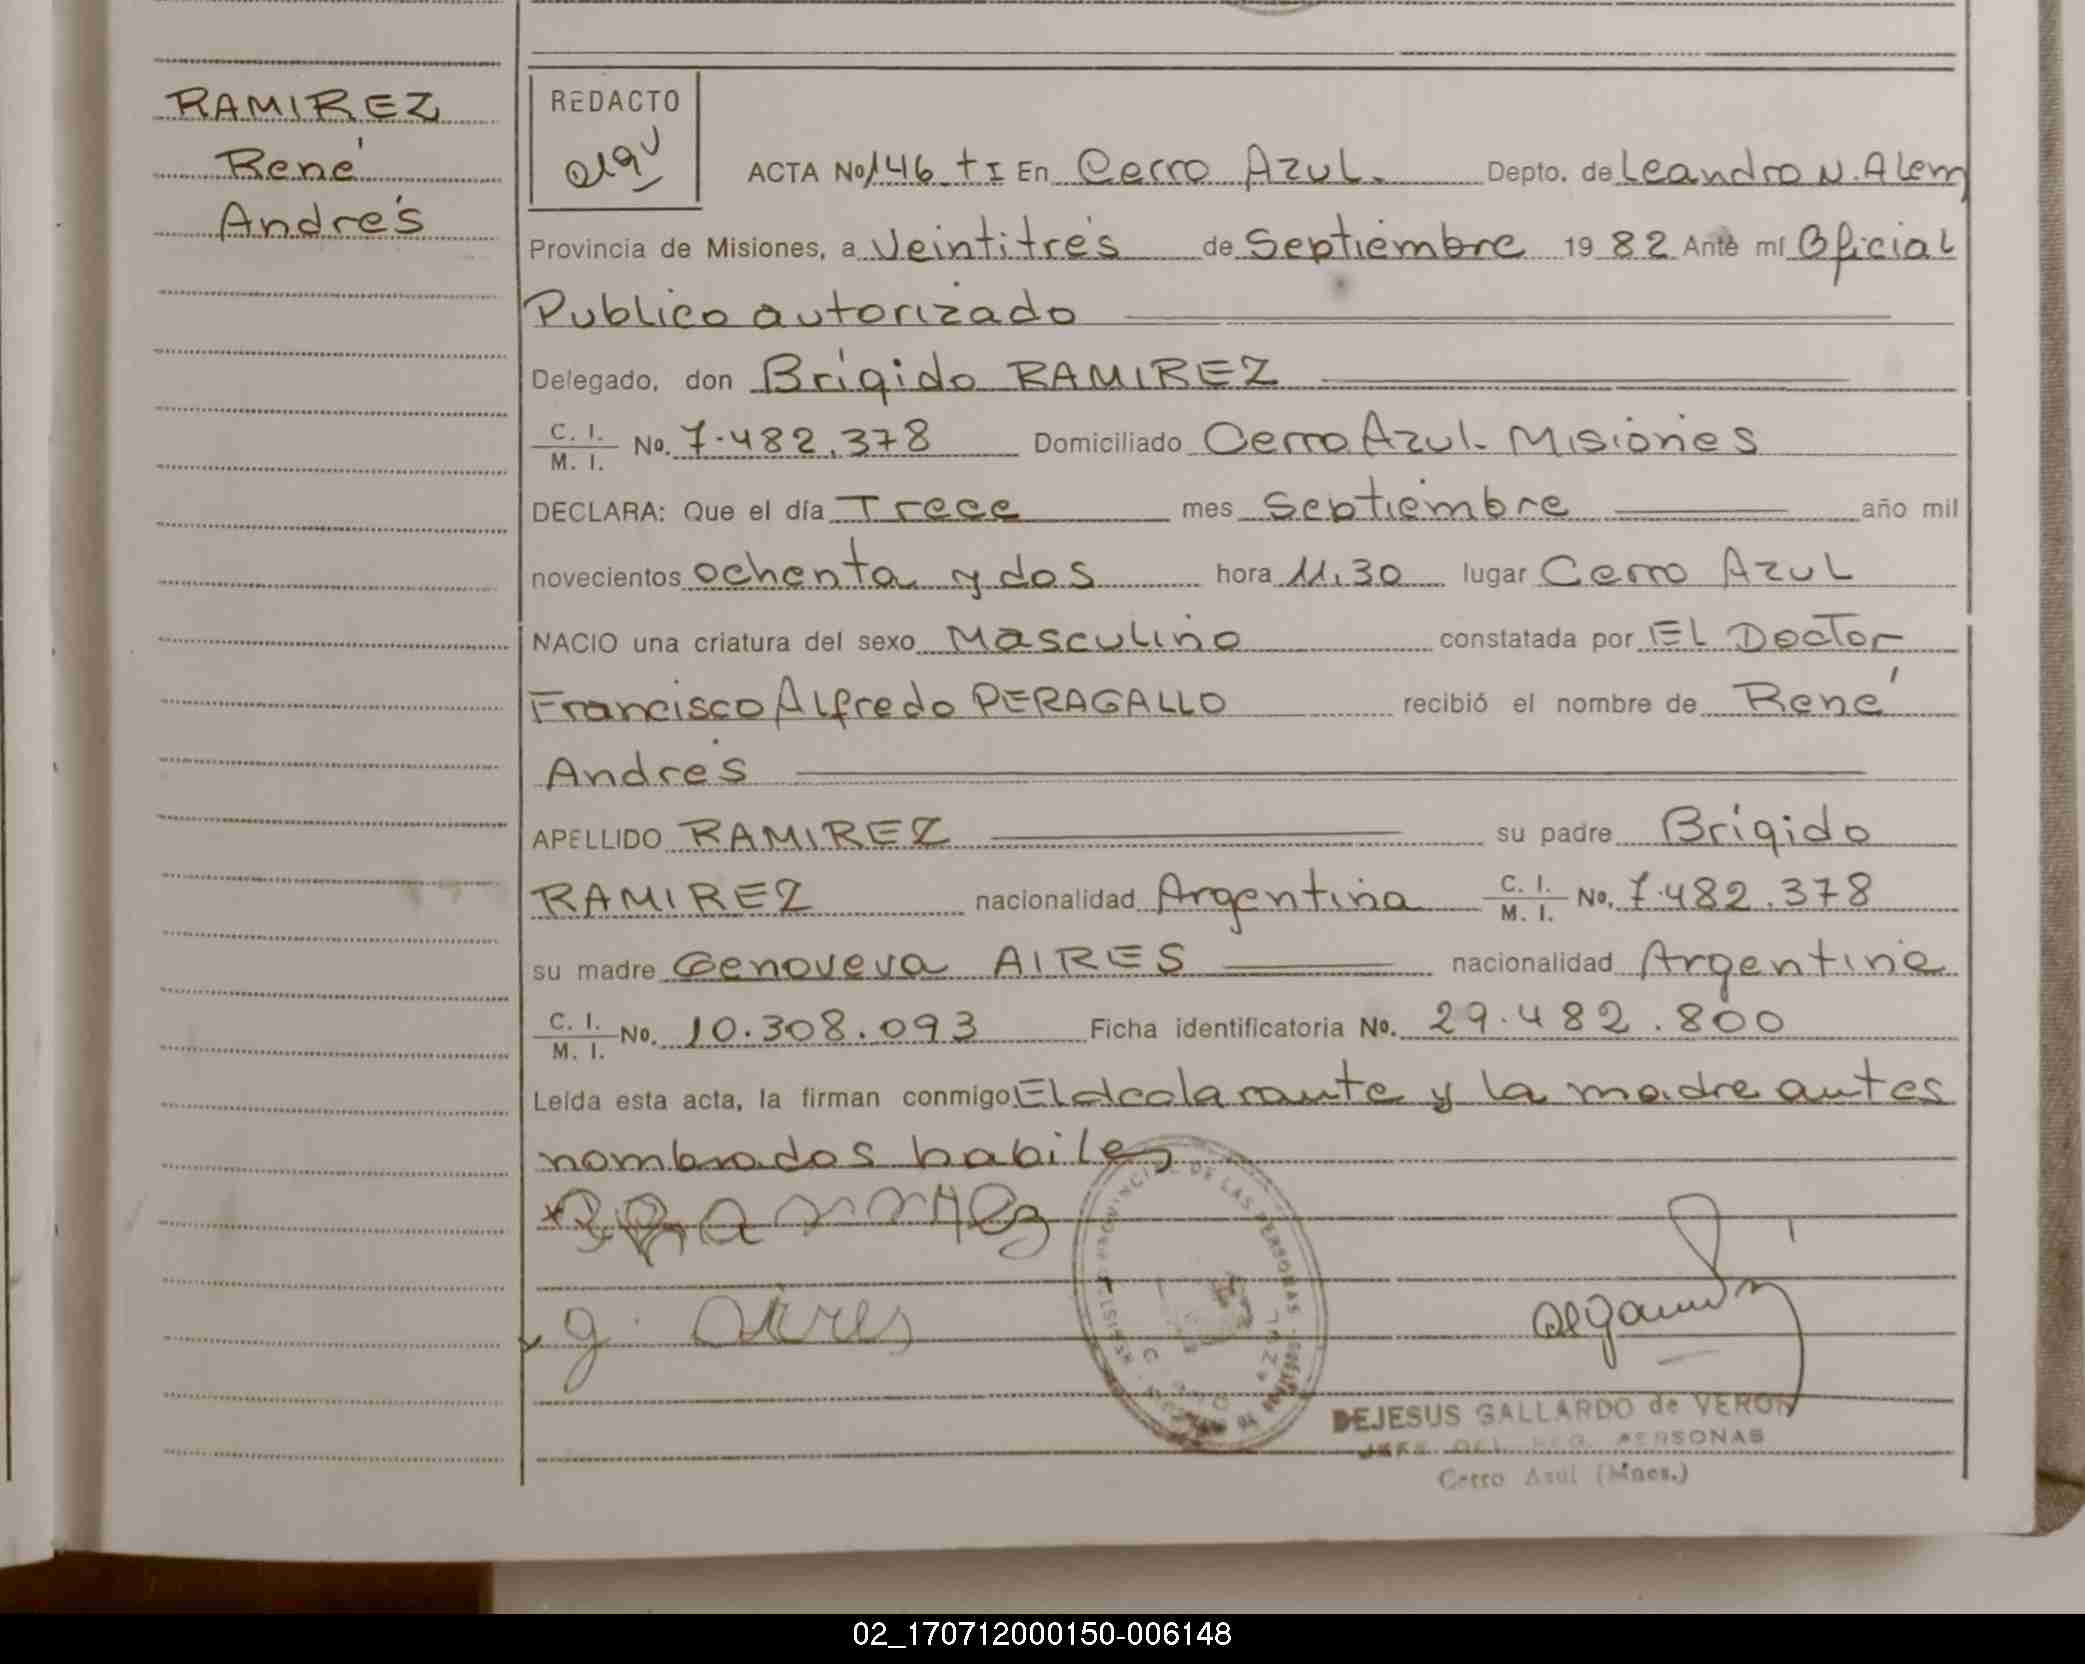 RAMIREZ
René
Andrés
REDACTO
ACTA No 146 t I En Cerro Azul. Depto. de Leandro N. Alem
Provincia de Misiones, a Veintitrés de Septiembre 1982 Ante mí Oficial
Publico autorizado
Delegado, don Brígido RAMIREZ
C. I. / M. I. No. 7.482.378 Domiciliado Cerro Azul. Misiones
DECLARA: Que el día Trece mes Septiembre año mil
novecientos ochenta y dos hora 11.30 lugar Cerro Azul
NACIO una criatura del sexo Masculino constatada por El Doctor
Francisco Alfredo PERAGALLO recibió el nombre de René
Andrés
APELLIDO RAMIREZ su padre Brígido
RAMIREZ nacionalidad Argentina C. I. / M. I. No. 7.482.378
su madre Genoveva AIRES nacionalidad Argentina
C. I. / M. I. No. 10.308.093 Ficha identificatoria No. 29.482.800
Leída esta acta, la firman conmigo El dcalarante y la madre antes
nombrados habiles
g. Aires
PROVINCIAL DE LAS PERSONAS
DEJESUS GALLARDO de VERON
JEFE DEL REG. PERSONAS
Cerro Azul (Mnes.)
02_170712000150-006148